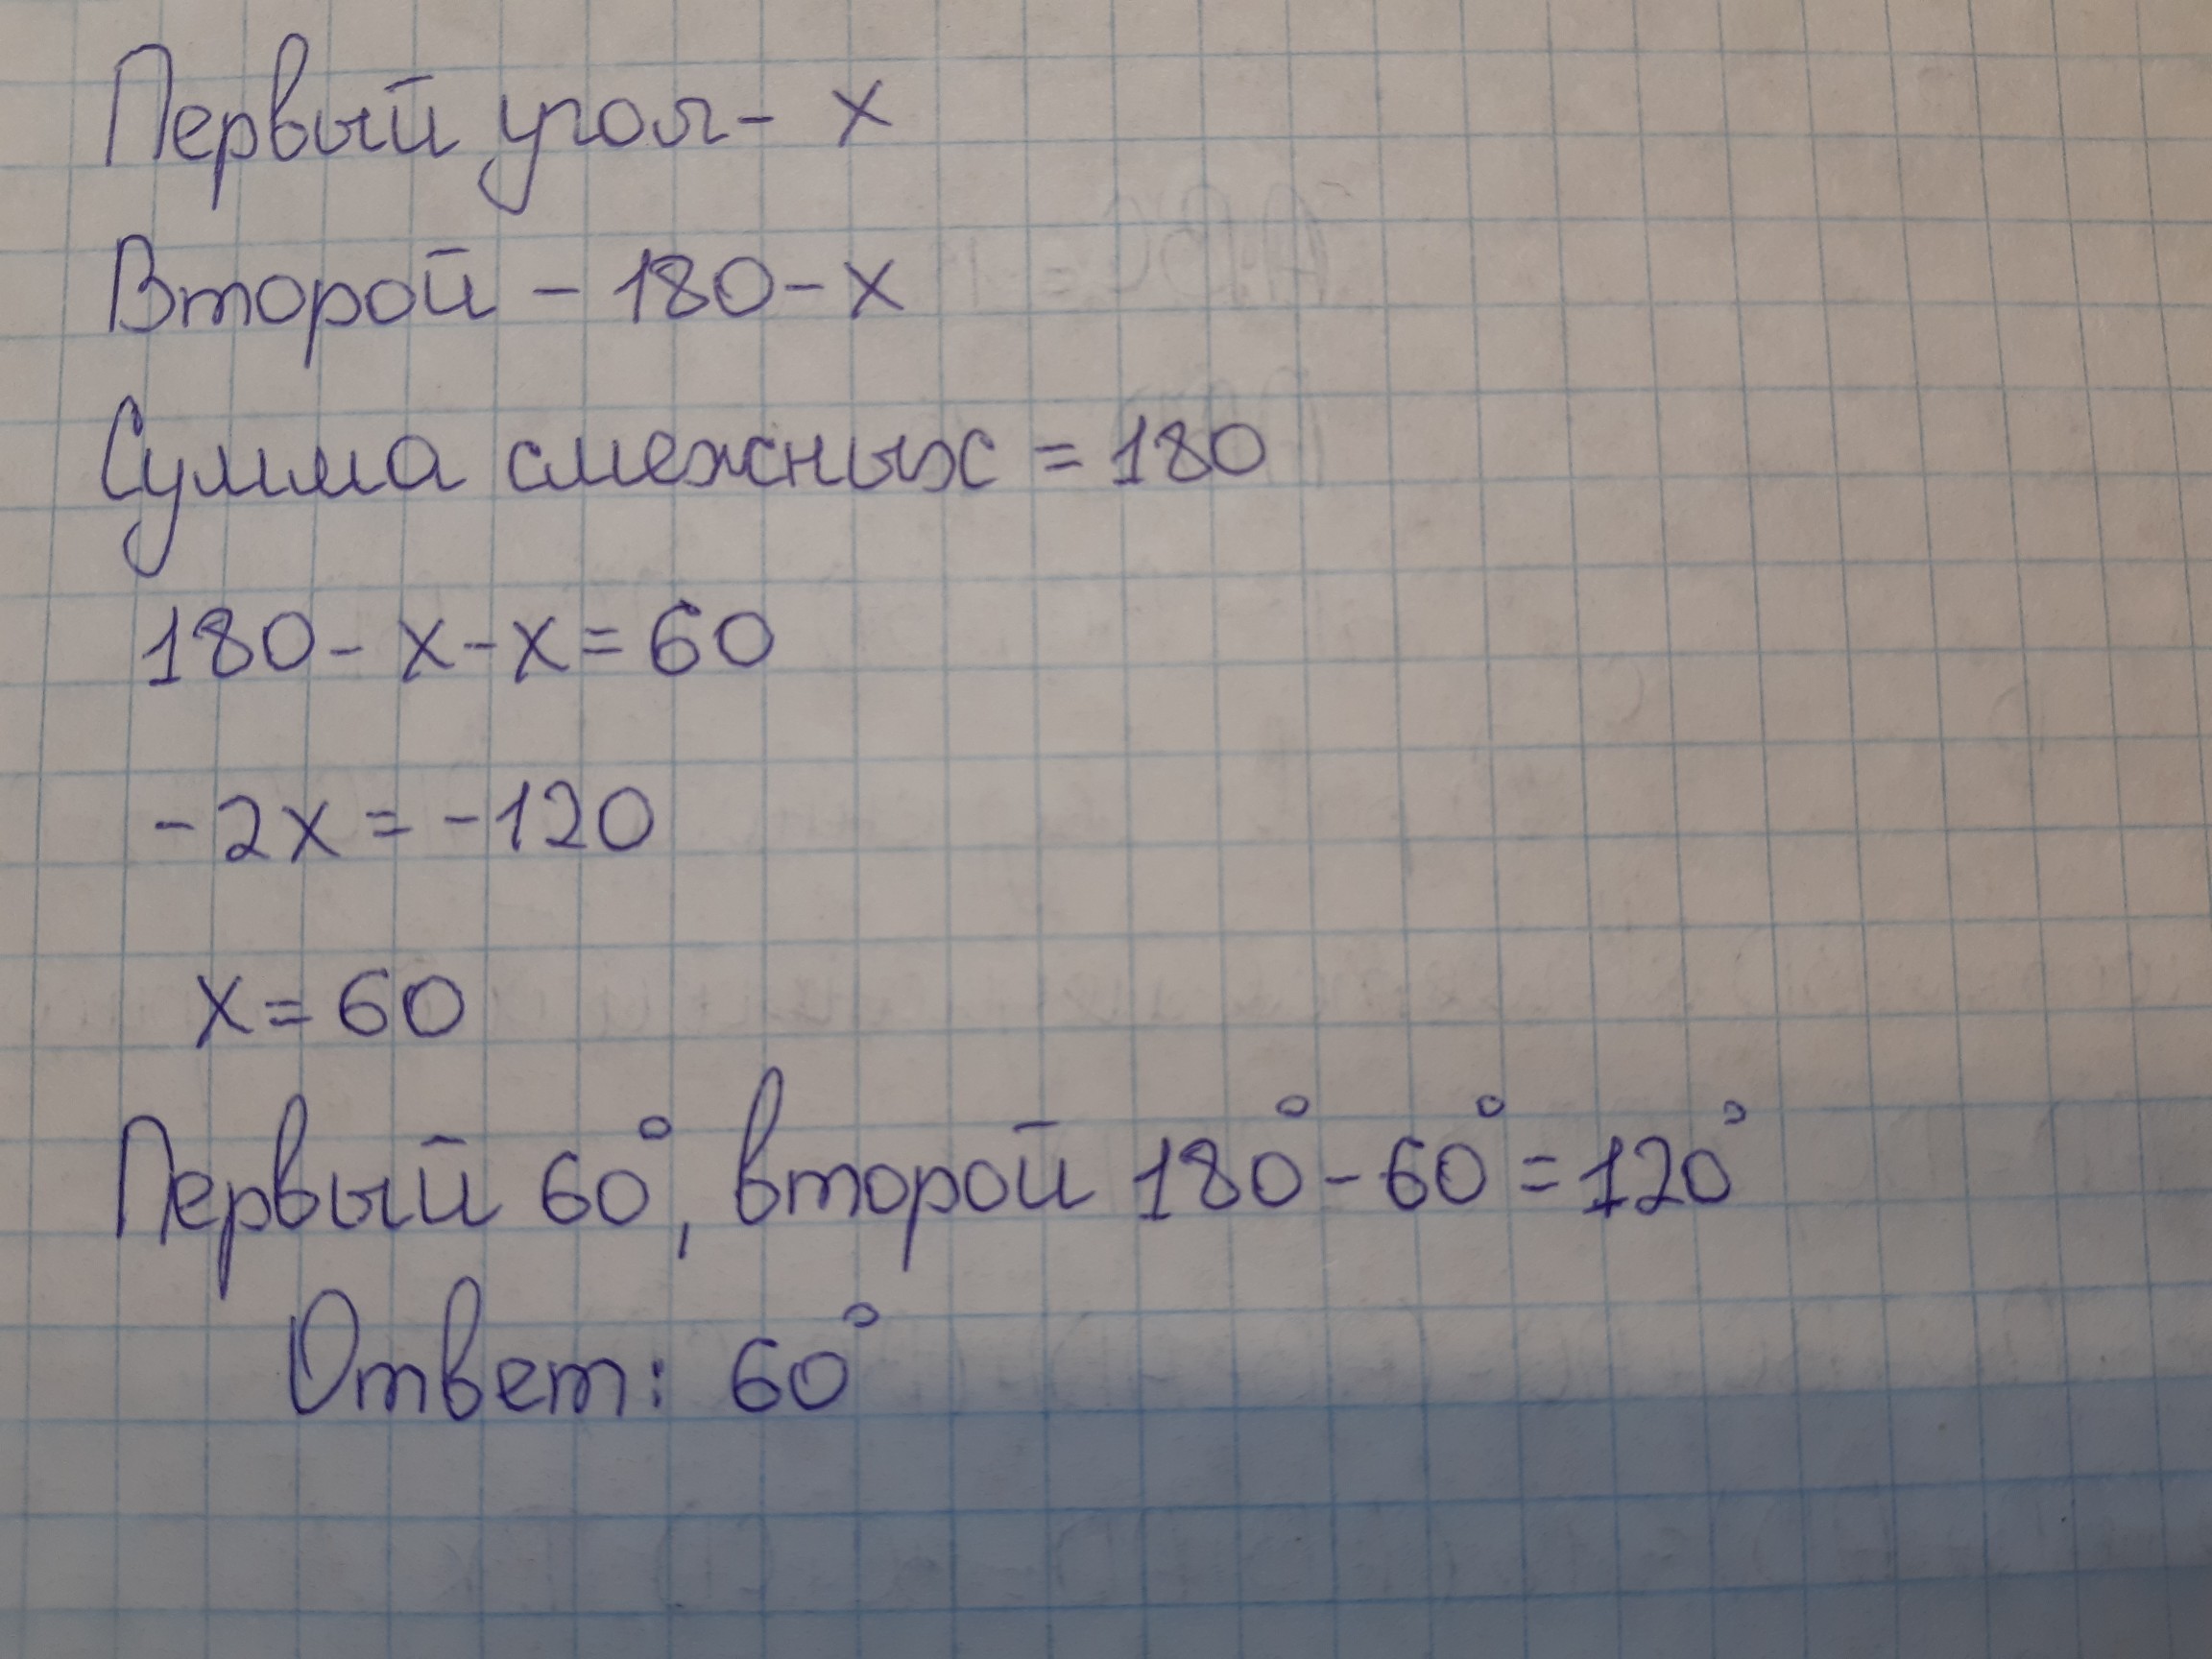 Первый угол - x
Второй - 180 - x
Сумма смежных = 180
180 - x - x = 60
-2x = -120
x = 60
Первый 60°, второй 180° - 60° = 120°
Ответ: 60°